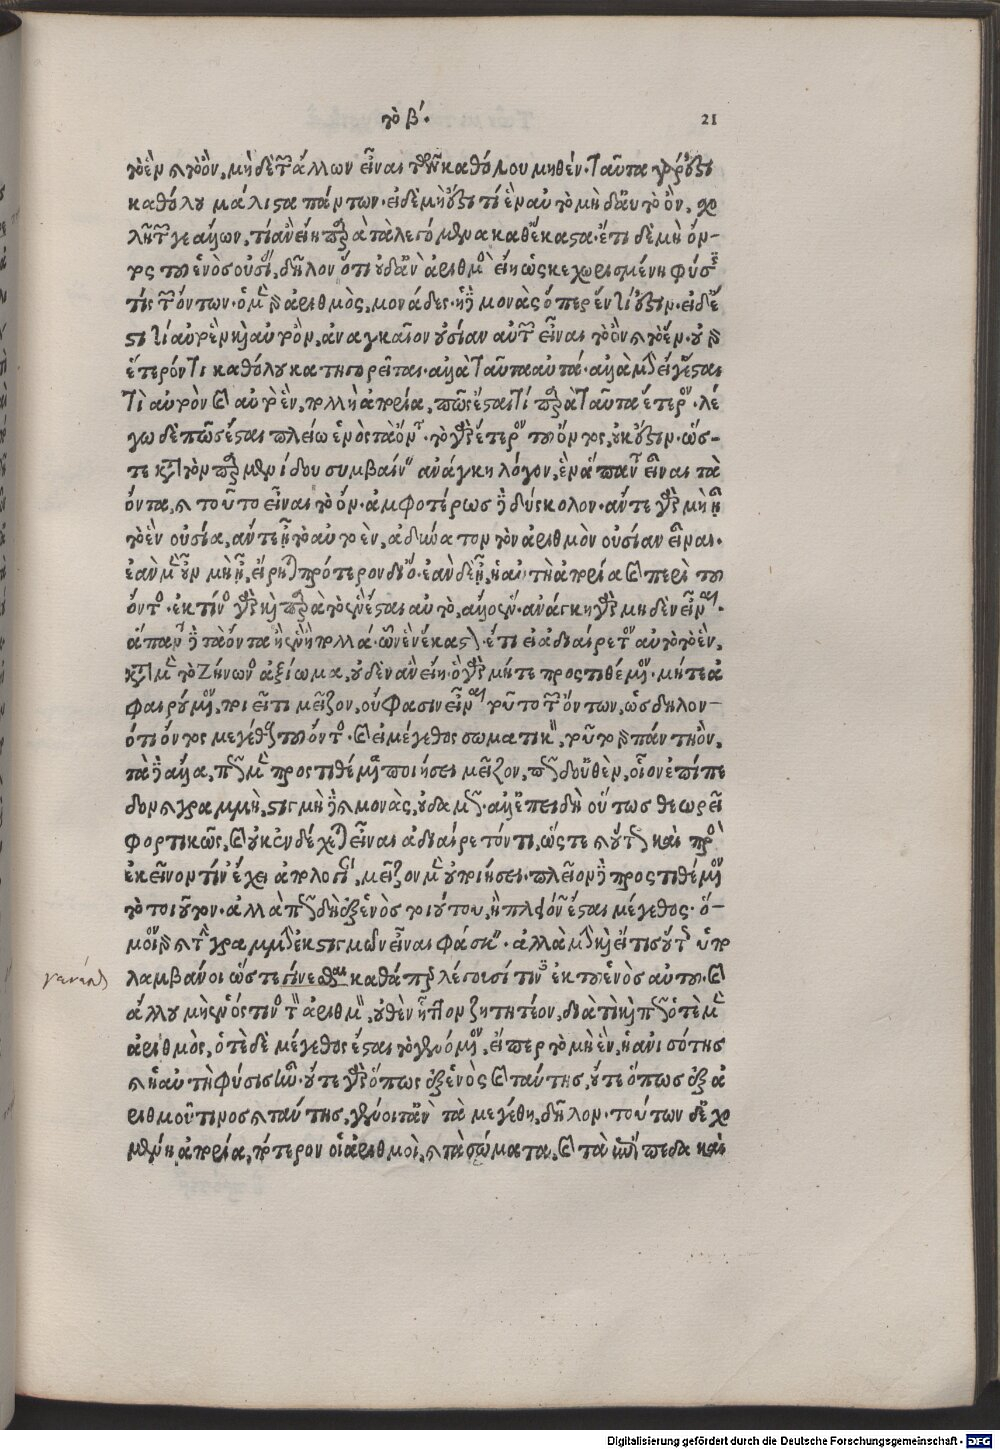 τὸ β΄. 21
τὸ ἓν καὶ τὸ ὂν, μηδὲ τῶν ἄλλων εἶναι τῶν καθόλου μηθέν. ταῦτα γάρ ἐστι
καθόλου μάλιστα πάντων. εἰ δὲ μὴ ἔστι τὶ ἓν αὐτὸ μὴ δ' αὐτὸ ὂν, σχο
λῇ τῶν γε ἄλλων, τὶ ἂν εἴη παρὰ τὰ λεγόμενα καθ' ἕκαστα. ἔτι δὲ μὴ ὄν-
τος τοῦ ἑνὸς οὐσίας, δῆλον ὅτι οὐδ' ἂν ἀριθμὸς εἴη ὡς κεχωρισμένη φύσις
τὶς τῶν ὄντων. ὁ μὲν γὰρ ἀριθμὸς, μονάδες. ἡ δὲ μονὰς ὅπερ ἕν τί ἐστιν. εἰ δ' ἔ
στι τὶ αὐτὸ ἓν καὶ αὐτὸ ὂν, ἀναγκαῖον οὐσίαν αὐτῶν εἶναι τὸ ὂν καὶ τὸ ἕν. οὐ γὰρ
ἕτερόν τι καθόλου κατηγορεῖται. ἀλλὰ ταῦτα αὐτά. ἀλλὰ μὴν εἴ γ' ἔσται
τὶ αὐτὸ ὂν καὶ αὐτὸ ἓν, πολλὴ ἀπορία, πῶς ἔσται τὶ παρὰ ταῦτα ἕτερον. λέ
γω δὲ πῶς ἔσται πλείω ἑνὸς τὰ ὄντα. τὸ γὰρ ἕτερον τοῦ ὄντος, οὐκ ἔστιν. ὥσ-
τε κατὰ τὸν παρμενίδου συμβαίνειν ἀνάγκη λόγον, ἓν ἅπαντα εἶναι τὰ
ὄντα, καὶ τοῦτο εἶναι τὸ ὄν. ἀμφοτέρως δὲ δύσκολον. ἄν τε γὰρ μὴ ᾖ
τὸ ἓν οὐσία, ἄν τε ᾖ τὸ αὐτὸ ἓν, ἀδύνατον τὸν ἀριθμὸν οὐσίαν εἶναι.
ἐὰν μὲν οὖν μὴ ᾖ, εἴρηται πρότερον διὸ. ἐὰν δὲ ᾖ, ἡ αὐτὴ ἀπορία καὶ περὶ τοῦ
ὄντος. ἐκ τίνος γὰρ καὶ παρὰ τὸ ἓν ἔσται αὐτὸ, ἄλλο ἕν. ἀνάγκη γὰρ μὴ ἓν εἶναι.
ἅπαντα δὲ τὰ ὄντα ἢ ἓν ἢ πολλά. ὧν ἓν ἕκαστον. ἔτι εἰ ἀδιαίρετον αὐτὸ τὸ ἓν,
κατὰ μὲν τὸ Ζήνωνος ἀξίωμα, οὐδὲν ἂν εἴη. ὃ γὰρ μήτε προστιθέμενον. μήτε ἀ
φαιρούμενον, ποιεῖ τι μεῖζον, οὔ φασιν εἶναι τοῦτο τῶν ὄντων, ὡς δηλον-
ότι ὄντος μεγέθους τοῦ ὄντος. καὶ εἰ μέγεθος σωματικὸν, τοῦτο γὰρ πάντη ὂν,
τὰ δὲ ἄλλα, πῶς μὲν προστιθέμενα ποιήσει μεῖζον, πῶς δ' οὐθὲν, οἷον ἐπίπε
δον καὶ γραμμὴ, στιγμὴ δὲ καὶ μονὰς, οὐδαμῶς. ἀλλ' ἐπειδὴ οὕτως θεωρεῖ
φορτικῶς, καὶ οὐκ ἐνδέχεται εἶναι ἀδιαίρετόν τι, ὥστε καὶ οὕτως καὶ πρὸς
ἐκεῖνον τίν' ἔχει ἀπολογίαν, μεῖζον μὲν οὐ ποιήσει. πλεῖον δὲ προστιθέμενον
τὸ τοιοῦτον. ἀλλὰ πῶς δὴ ἐξ ἑνὸς τοιούτου, ἢ πλειόνων ἔσται μέγεθος. ὅ-
μοιον γὰρ καὶ τὴν γραμμὴν ἐκ στιγμῶν εἶναι φάσκειν. ἀλλὰ μὴν καὶ εἴ τις οὕτως ὑπο
λαμβάνοι ὥστε γίνεσθαι καθάπερ λέγουσί τινες ἐκ τοῦ ἑνὸς αὐτοῦ. καὶ
ἄλλου μὴ ἑνός τινος τὸν ἀριθμὸν, οὐθὲν ἧττον ζητητέον, διατὶ καὶ πῶς ὁτὲ μὲν
ἀριθμὸς, ὁτὲ δὲ μέγεθος ἔσται τὸ γενόμενον, εἴπερ τὸ μὴ ἓν, ἡ ἀνισότης
καὶ ἡ αὐτὴ φύσις ἦν. οὔτε γὰρ ὅπως ἐξ ἑνὸς καὶ ταύτης, οὔτε ὅπως ἐξ ἀ
ριθμοῦ τινος καὶ ταύτης, γένοιτ' ἂν τὰ μεγέθη, δῆλον. τούτων δ' ἐχο
μένη ἀπορία, πότερον οἱ ἀριθμοὶ, καὶ τὰ σώματα, καὶ τὰ ἐπίπεδα καὶ